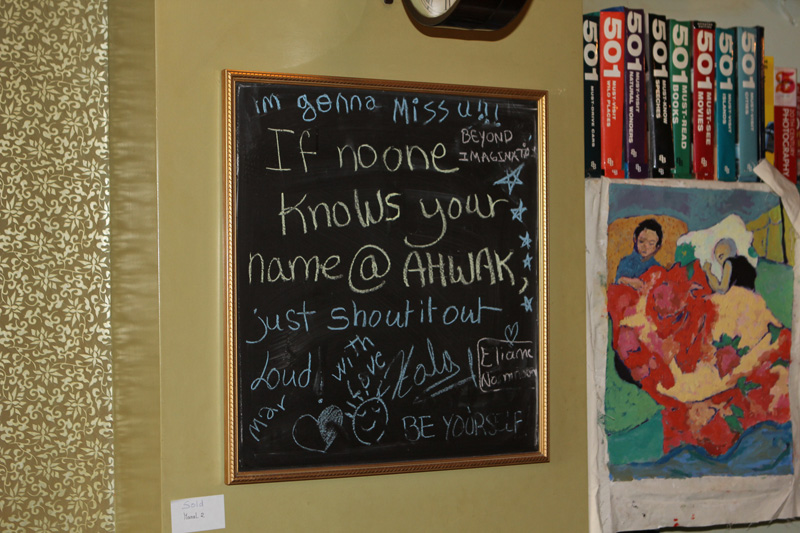 im gonna Miss u!!!
BEYOND
IMAGINATIO
If no one
Knows your
name @ AHWAK,
just shout it out
Loud!
with
love
Mar
Eliane
BE YOURSELF
Sold
501
MUST-DRIVE CARS
501
MUST-VISIT
WILD PLACES
501
MUST-VISIT
NATURAL WONDERS
501
MUST-KNOW
SPEECHES
501
MUST-READ
BOOKS
501
MUST-SEE
MOVIES
501
MUST-VISIT
ISLANDS
501
PHOTOGRAPHY